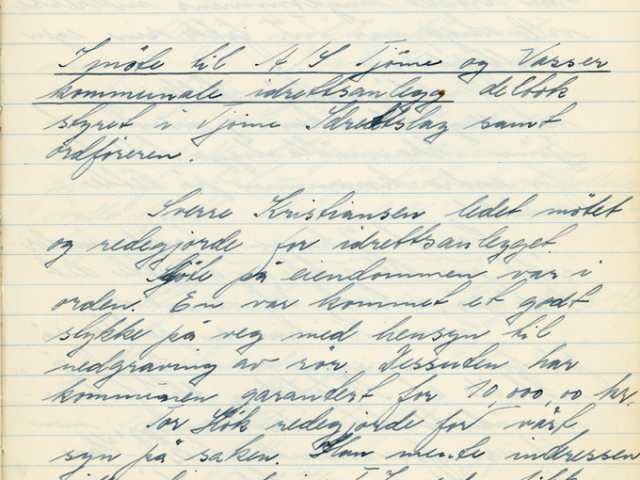 I møte til A/S Tjøme og Vasser
kommunale idrettsanlegg deltok
styret i Tjøme Idrettslag samt
ordføreren.
Sverre Kristiansen ledet møtet
og redegjorde for idrettsanlegget.
Skjøte på eiendommen var i
orden. En var kommet et godt
stykke på veg med hensyn til
nedgraving av rør. Dessuten har
kommunen garantert for 10,000,00 kr.
Tor Høk redegjorde for vårt
syn på saken. Han mente intressen